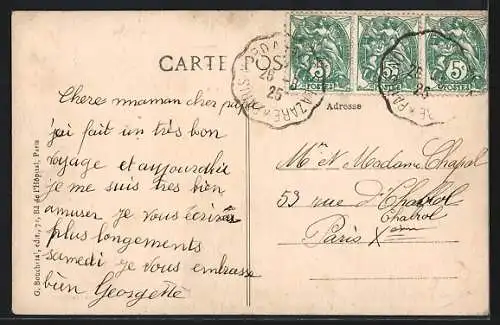 CARTE POS
Adresse
Chere maman cher papa
j'ai fait un très bon
voyage et aujourdhie
je me suis tres bien
amuser je vous écrirai
plus longements
samedi je vous embrasse
bien Georgette
Mr et Madame Chapal
53 rue d'Chabrol
Chabrol
Paris Xem
G. Bouchetal, édit., 71, Bd de l'Hôpital, Paris
5 5 5
POSTES POSTES
26
25
NAZAIRE
26
25